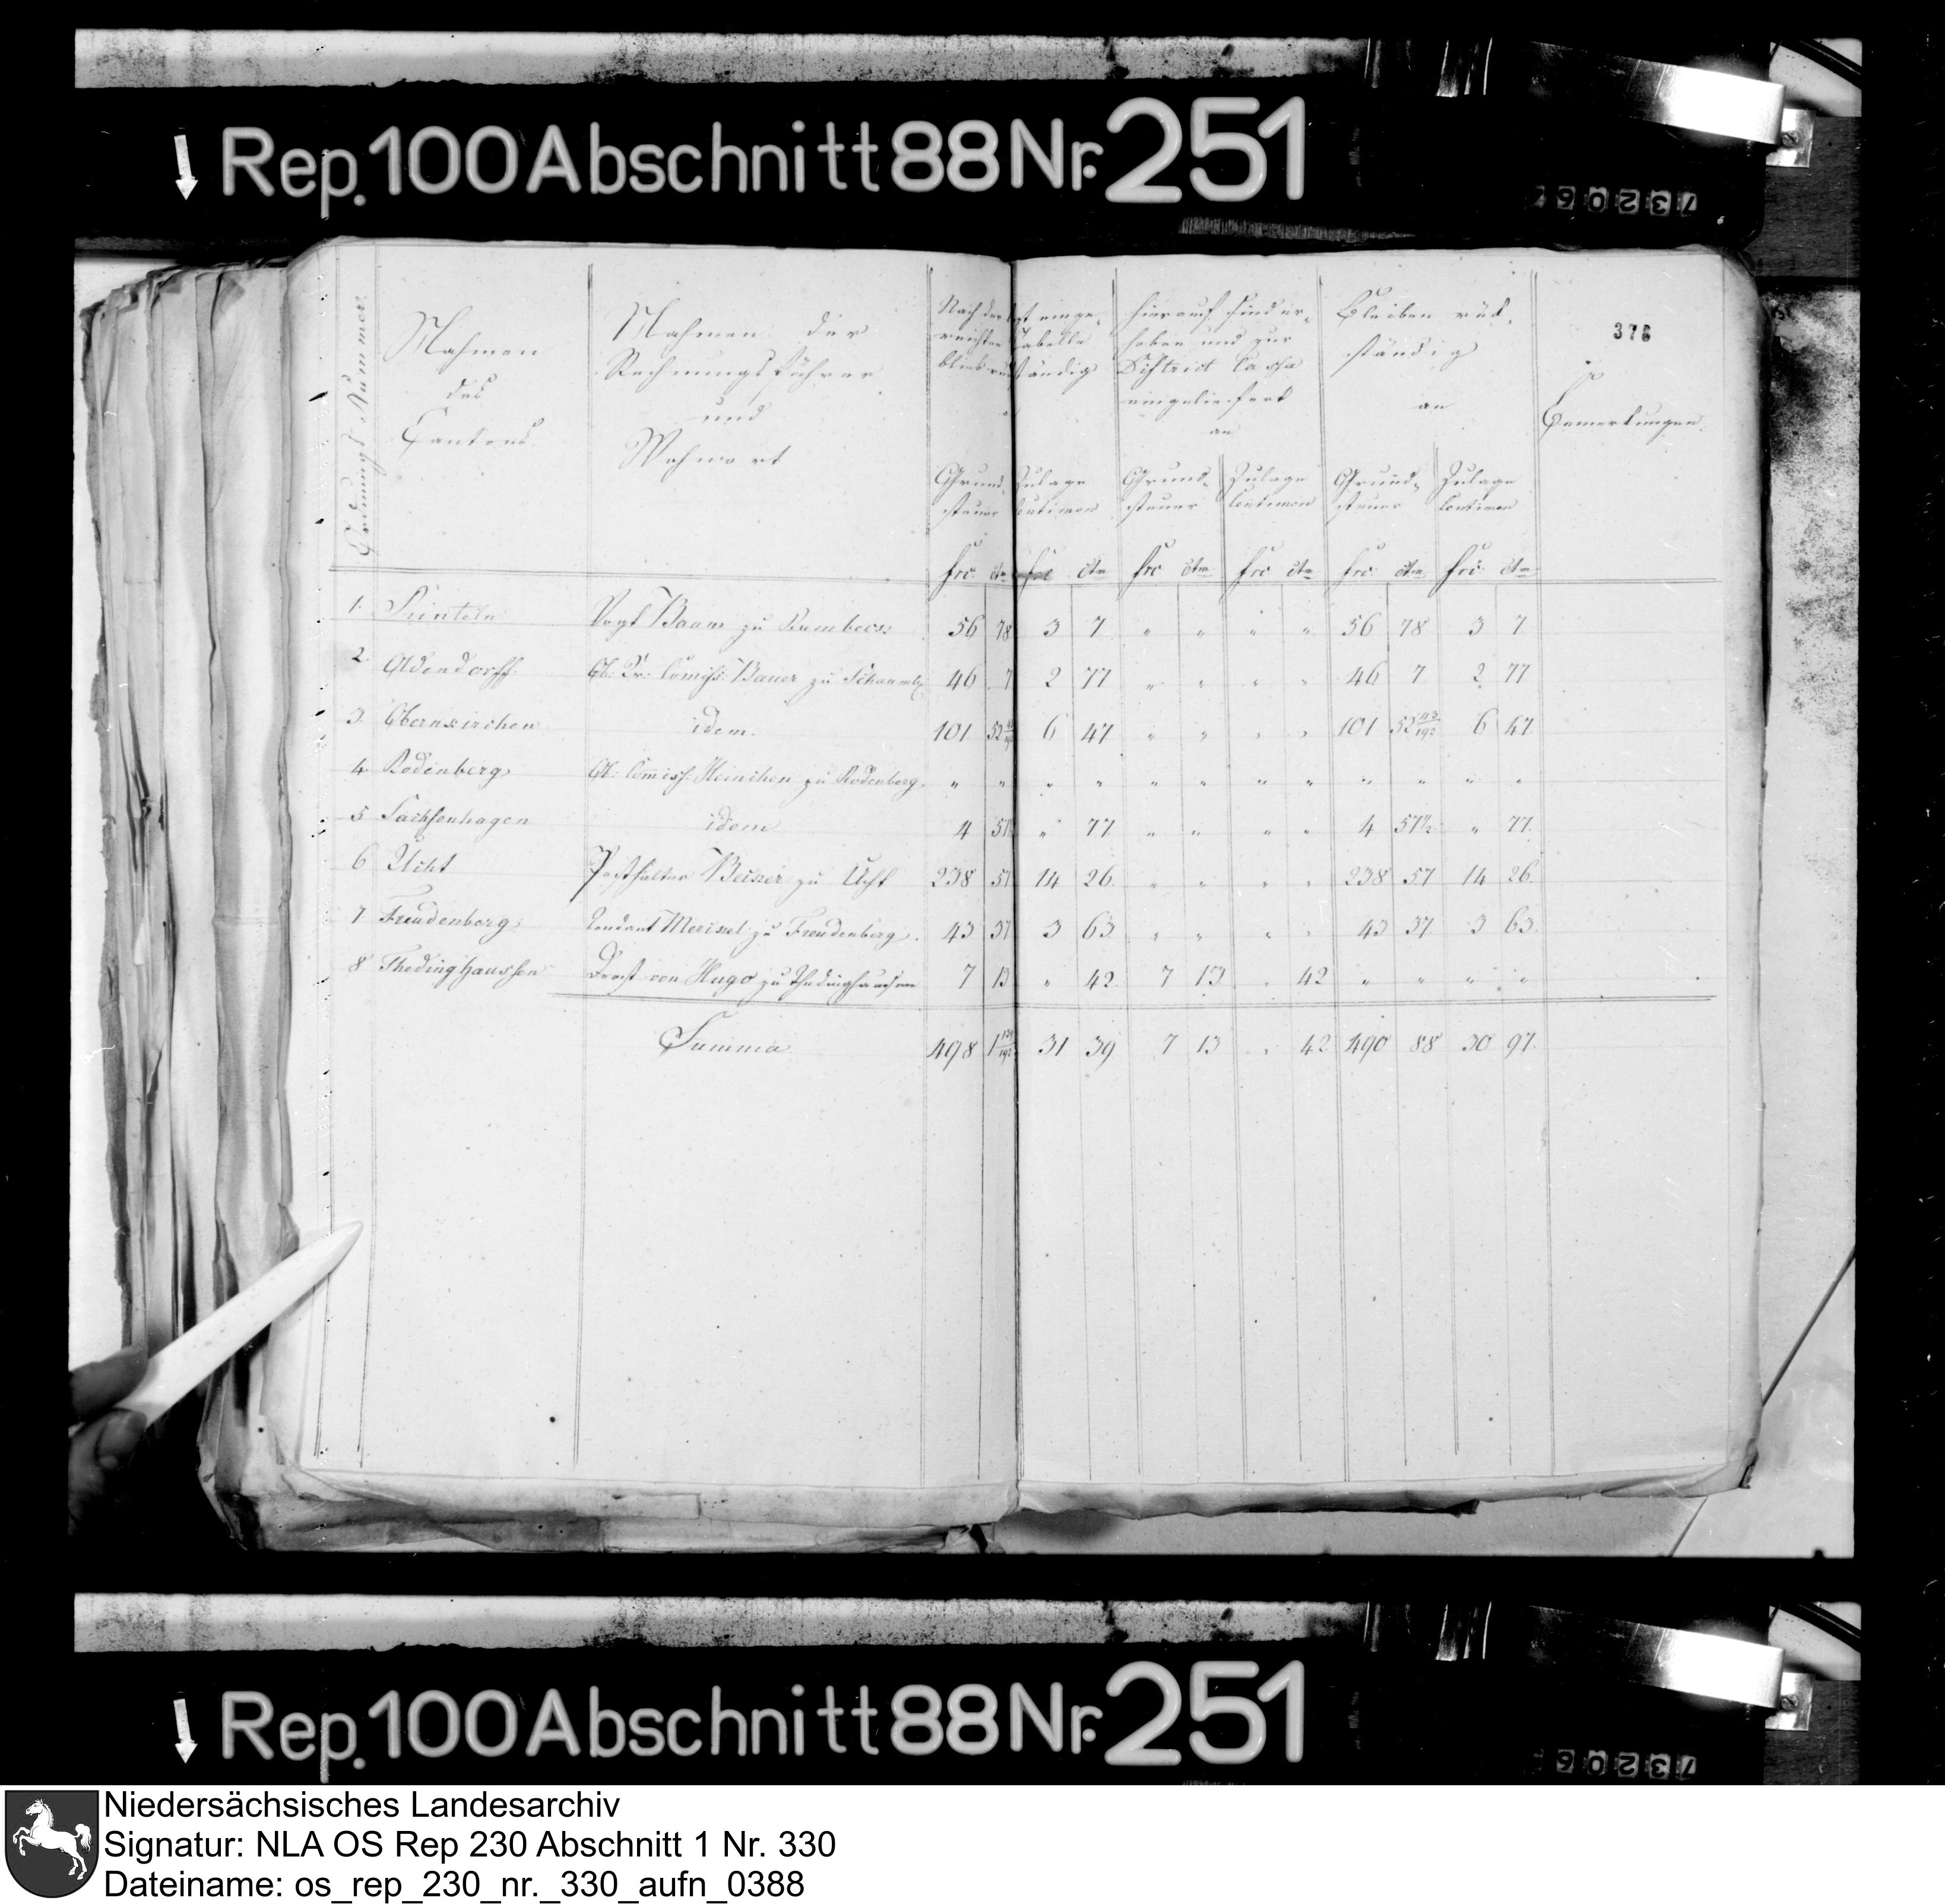 Rep. 100 Abschnitt 88 Nr. 251
376
Ordnungs Nummer
Nahmen des Cantons
Nahmen der Rechnungsführer und Wohnort
Nach der letzt eingereichten Tabelle blieb rückständig
Hierauf sind erhoben und zur District Cassa eingeliefert an
Bleiben rückständig an
Bemerkungen.
Grundsteuer Zulage Centimen Grundsteuer Zulage Centimen Grundsteuer Zulage Centimen
frc. ctm frc ctm frc ctm frc ctm frc. ctm frc. ctm
1. Rinteln Vogt Baum zu Rumbeck 56 78 3 7 " " " " 56 78 3 7
2. Oldendorff zu Schaumb 46 7 2 77 " " " " 46 7 2 77
3. Obernkirchen idem. 101 52 43/192 6 47 " " " " 101 52 43/192 6 47.
4. Rodenberg Heinichen zu Rodenberg. " " " " " " " " " " " "
5 Sachsenhagen idem 4 57½ " 77. " " " " 4 57½ " 77.
6 Ucht Posthalter zu Ucht 238 57 14 26. " " " " 238 57 14 26.
7 Freudenberg zu Freudenberg. 43 37 3 63. " " " " 43 37. 3 63.
8 Thedinghaussen Drost von Hugo zu Thedinghausen 7 13 " 42. 7 13 " 42 " " " "
Summa 498 1 31 39 7 13 " 42 490 88 30 97.
Rep. 100 Abschnitt 88 Nr. 251
Niedersächsisches Landesarchiv
Signatur: NLA OS Rep 230 Abschnitt 1 Nr. 330
Dateiname: os_rep_230_nr._330_aufn_0388